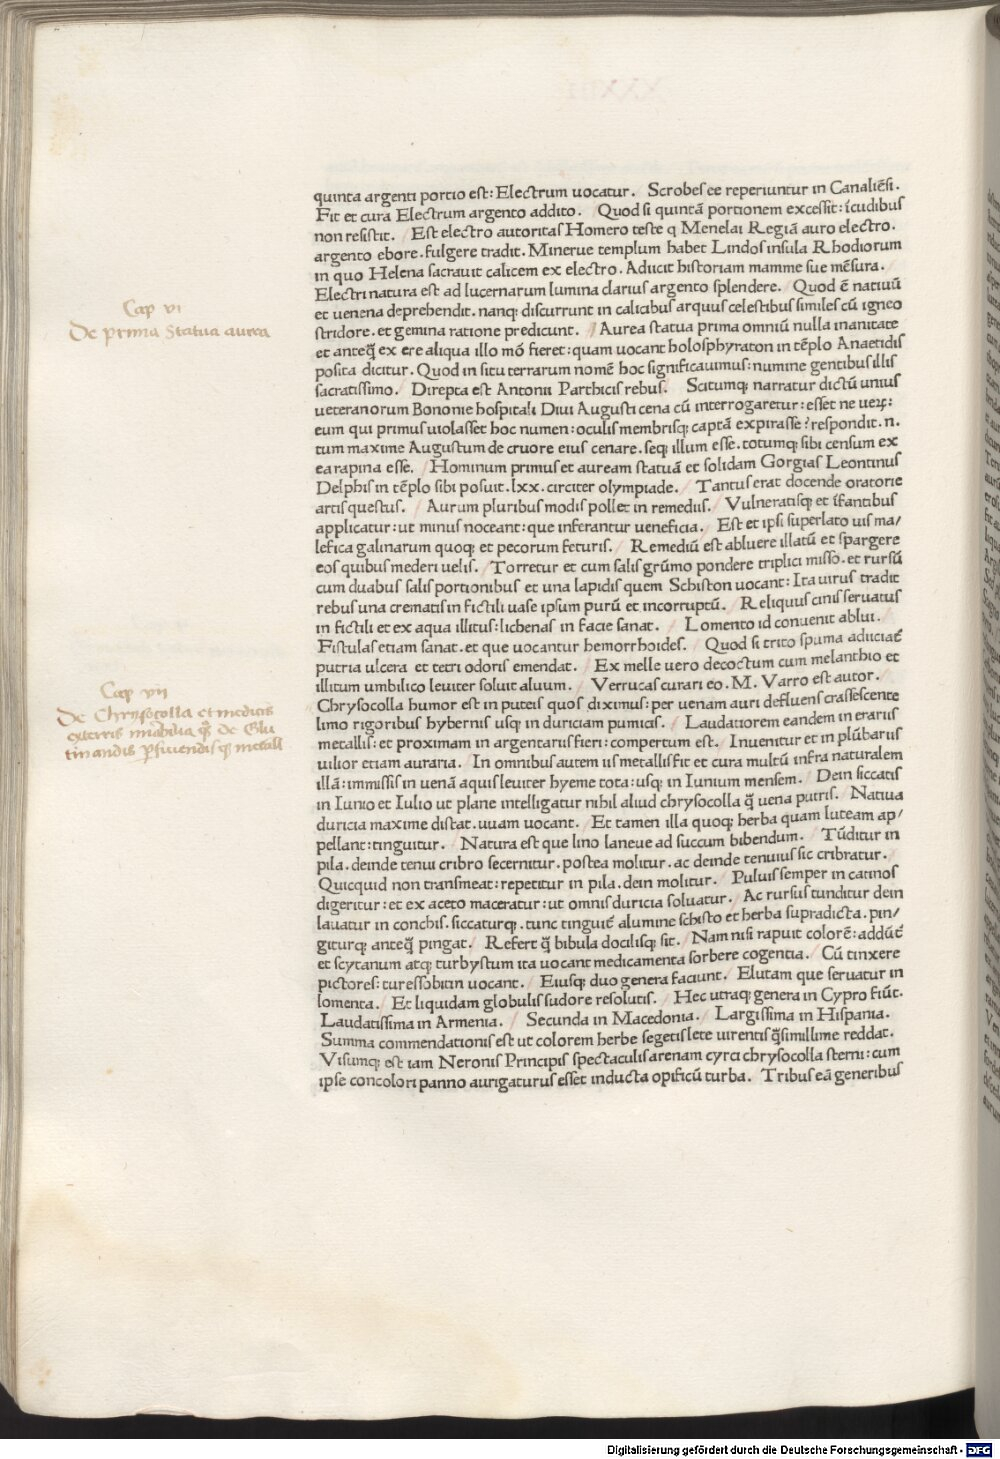 quinta argenti portio est: Electrum uocatur. Scrobes ee reperiuntur in Canaliẽsi.
Fit et cura Electrum argento addito. Quod si quintã portionem excessit: ĩcudibus
non resistit. Est electro autoritas Homero teste q Menelai Regiã auro electro.
argento ebore. fulgere tradit. Minerue templum habet Lindos insula Rhodiorum
in quo Helena sacrauit calicem ex electro. Adiicit historiam mamme sue mẽsura.
Electri natura est ad lucernarum lumina clarius argento splendere. Quod ẽ natiuũ
et uenena deprehendit. nanq; discurrunt in calicibus arquus celestibus similes cũ igneo
stridore. et gemina ratione predicunt. Aurea statua prima omniũ nulla inanitate
et anteq̃ ex ere aliqua illo mõ fieret: quam uocant holosphyraton in tẽplo Anaetidis
posita dicitur. Quod in situ terrarum nomẽ hoc significauimus: numine gentibus illis
sacratissimo. Direpta est Antonii Parthicis rebus. Scitumq; narratur dictũ unius
ueteranorum Bononie hospitali Diui Augusti cena cũ interrogaretur: esset ne ueꝝ:
eum qui primus uiolasset hoc numen: oculis membrisq; captã expirasse? respondit. n.
tum maxime Augustum de cruore eius cenare. seq; illum esse. totumq; sibi censum ex
ea rapina esse. Hominum primus et auream statuã et solidam Gorgias Leontinus
Delphis in tẽplo sibi posuit. lxx. circiter olympiade. Tantus erat docende oratorie
artis questus. Aurum pluribus modis pollet in remediis. Vulneratisq; et ĩfantibus
applicatur: ut minus noceant: que inferantur ueneficia. Est et ipsi superlato uis ma/
lefica galinarum quoq; et pecorum feturis. Remediũ est abluere illatũ et spargere
eos quibus mederi uelis. Torretur et cum salis grũmo pondere triplici misso. et rursũ
cum duabus salis portionibus et una lapidis quem Schiston uocant: Ita uirus tradit
rebus una crematis in fictili uase ipsum purũ et incorruptũ. Reliquus cinis seruatus
in fictili et ex aqua illitus: lichenas in facie sanat. Lomento id conuenit ablui.
Fistulas etiam sanat. et que uocantur hemorrhoides. Quod si trito spuma adiiciat̃
putria ulcera et tetri odoris emendat. Ex melle uero decoctum cum melanthio et
illitum umbilico leuiter soluit aluum. Verrucas curari eo. M. Varro est autor.
Chrysocolla humor est in puteis quos diximus: per uenam auri defluens crassescente
limo rigoribus hybernis usq; in duriciam pumicis. Laudatiorem eandem in erariis
metallis: et proximam in argentariis fieri: compertum est. Inuenitur et in plũbariis
uilior etiam auraria. In omnibus autem iis metallis fit et cura multũ infra naturalem
illã: immissis in uenã aquis leuiter hyeme tota: usq; in Iunium mensem. Dein siccatis
in Iunio et Iulio ut plane intelligatur nihil aliud chrysocolla q̃ uena putris. Natiua
duricia maxime distat. uuam uocant. Et tamen illa quoq; herba quam luteam ap/
pellant: tinguitur. Natura est que lino laneue ad succum bibendum. Tũditur in
pila. deinde tenui cribro secernitur. postea molitur. ac deinde tenuius sic cribratur.
Quicquid non transmeat: repetitur in pila. dein molitur. Puluis semper in catinos
digeritur: et ex aceto maceratur: ut omnis duricia soluatur. Ac rursus tunditur dein
lauatur in conchis. siccaturq. tunc tinguit̃ alumine schisto et herba supradicta. pin/
giturq; anteq̃ pingat. Refert q̃ bibula docilisq; sit. Nam nisi rapuit colorẽ: addũt̃
et scytanum atq; turbystum ita uocant medicamenta sorbere cogentia. Cũ tinxere
pictores: turessobitin uocant. Eiusq; duo genera faciunt. Elutam que seruatur in
lomenta. Et liquidam globulis sudore resolutis. Hec utraq; genera in Cypro fiũt.
Laudatissima in Armenia. Secunda in Macedonia. Largissima in Hispania.
Summa commendationis est ut colorem herbe segetis lete uirentis q̃simillime reddat.
Visumq; est iam Neronis Principis spectaculis arenam cyrci chrysocolla sterni: cum
ipse concolori panno aurigaturus esset inducta opificũ turba. Tribus eã generibus
Cap vi
De prima Statua aurea
Cap vii
De Chrysocolla et medicis
exterris mirabilia q̃ de Glu
tinandis metall
Digitalisierung gefördert durch die Deutsche Forschungsgemeinschaft - DFG